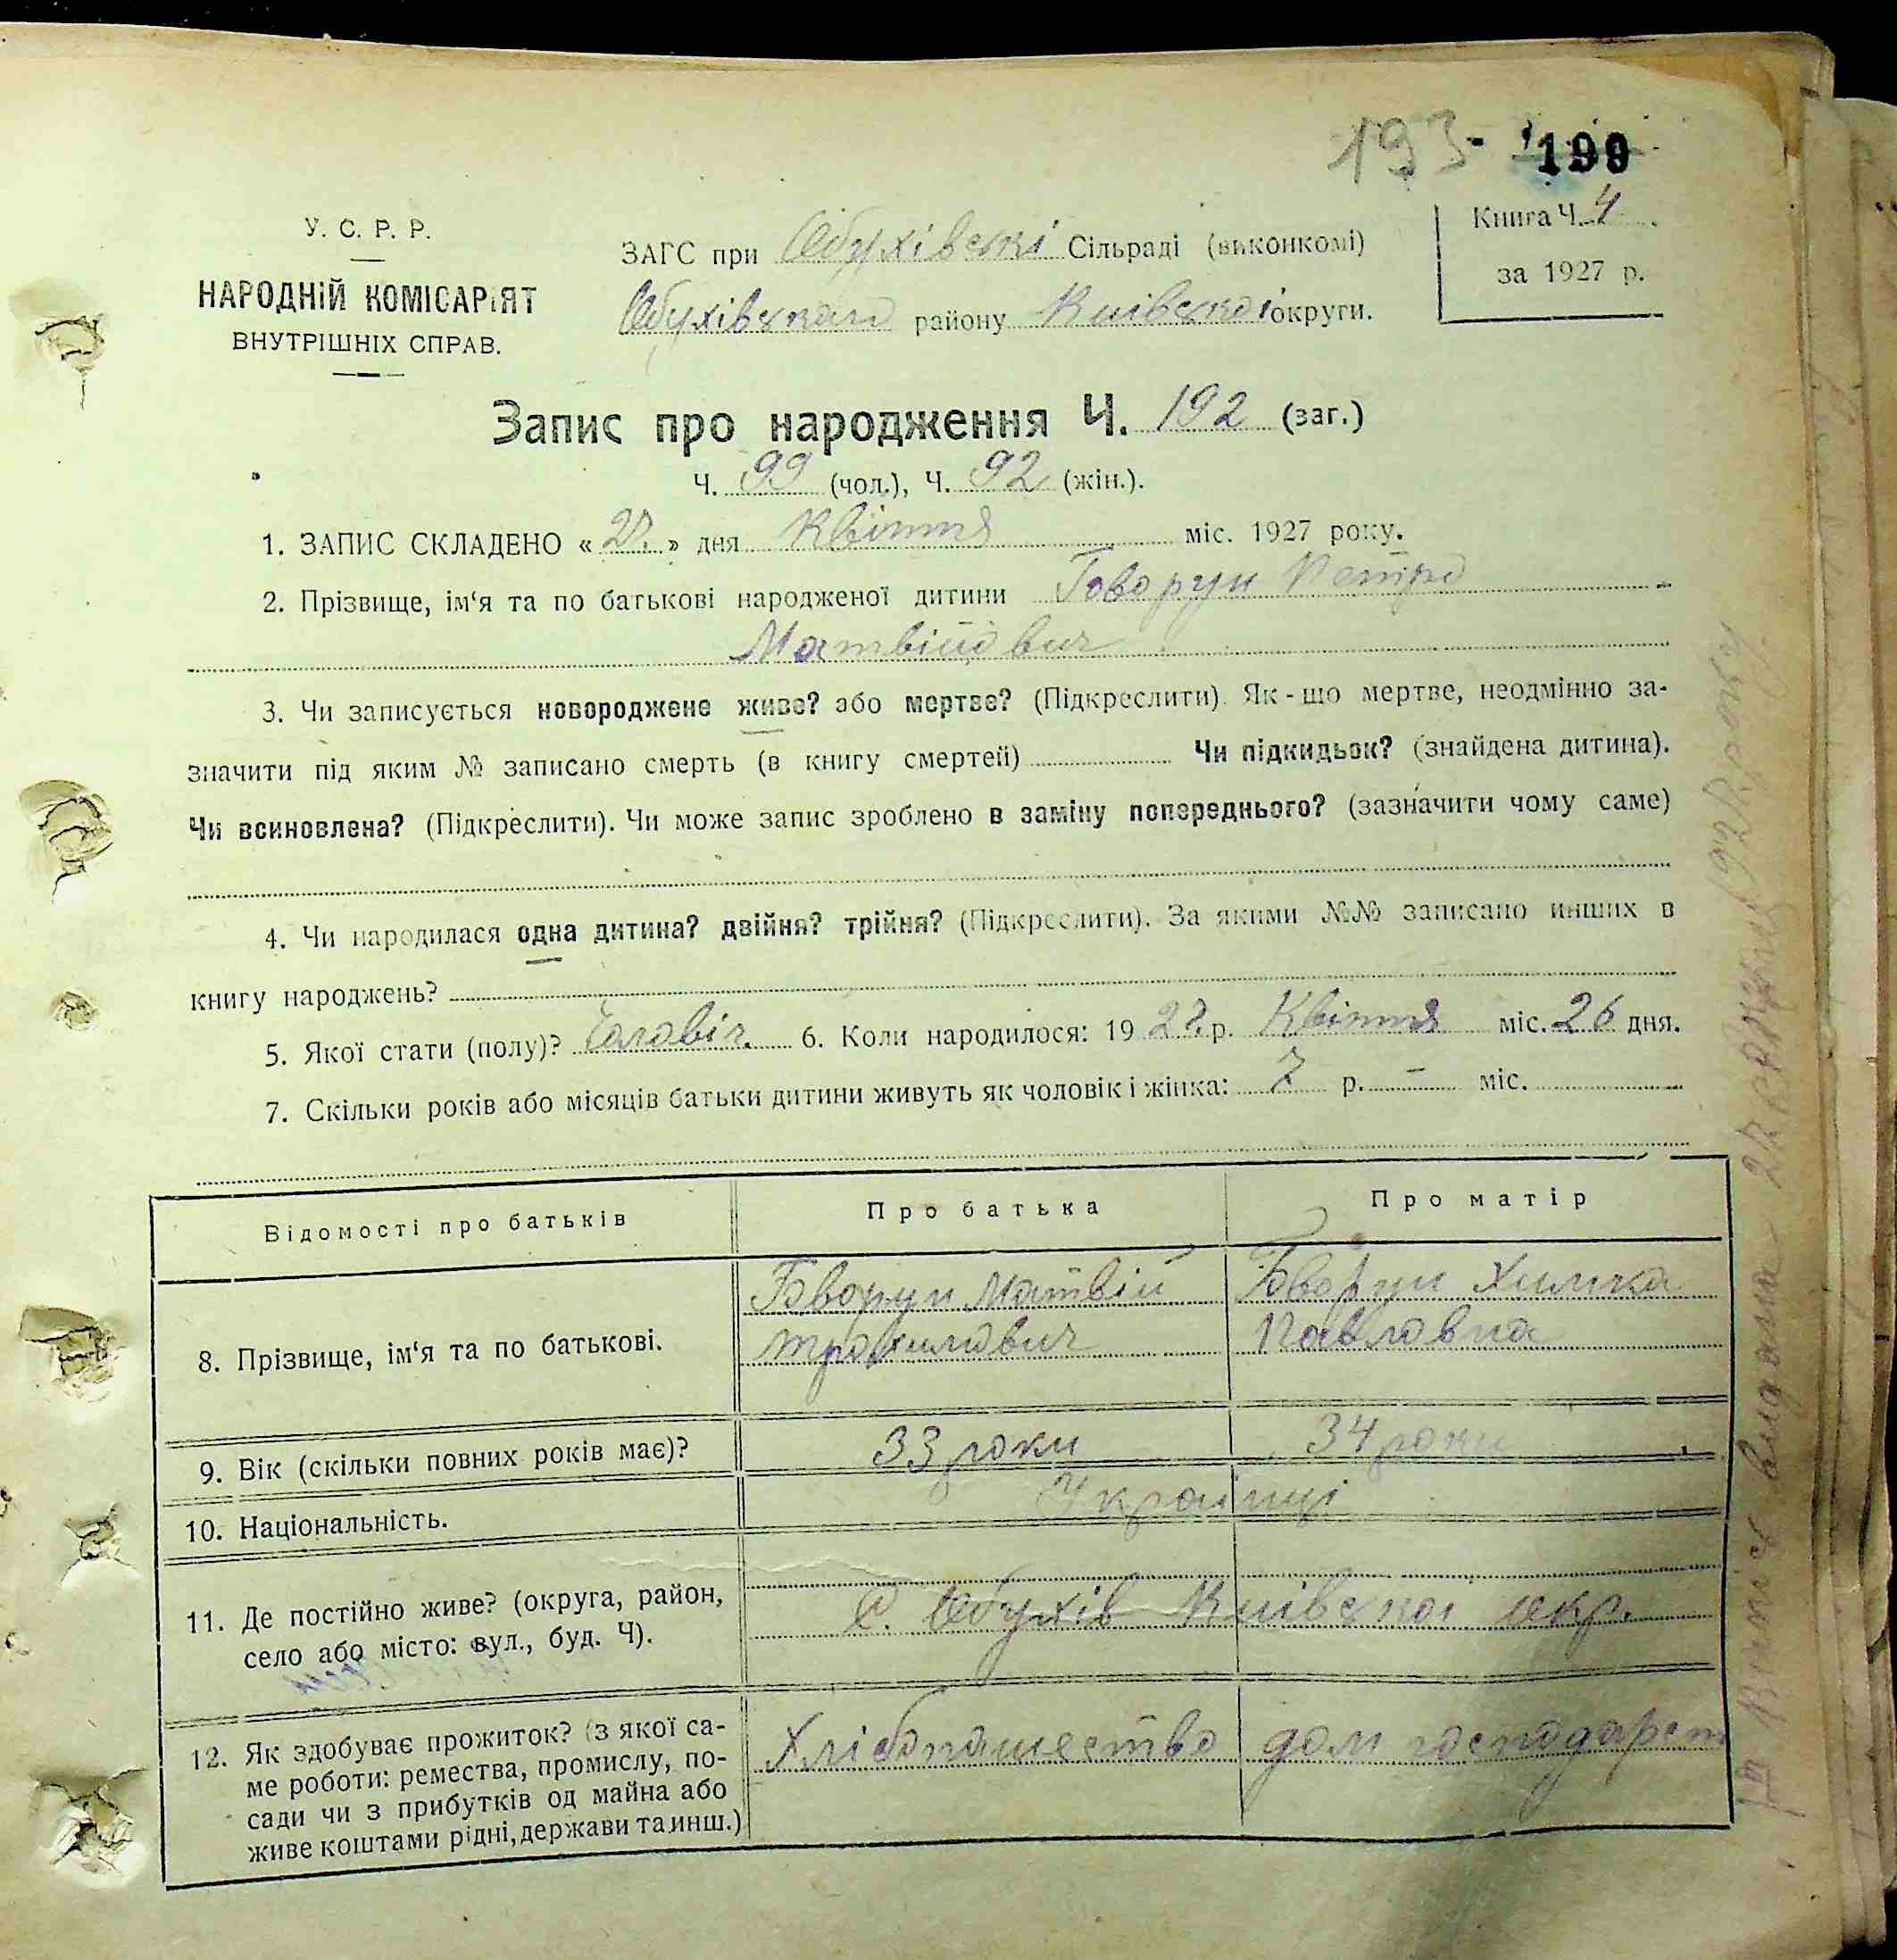 193 - 199
У. С. Р. Р.
НАРОДНІЙ КОМІСАРІЯТ
ВНУТРІШНІХ СПРАВ.
ЗАГС при Обухівські Сільраді (виконкомі)
Обухівского району Київської округи.
Книга Ч. 4
за 1927 р.
Запис про народження Ч. 192 (заг.)
Ч. 99 (чол.), Ч. 92 (жін.).
1. ЗАПИС СКЛАДЕНО « 27. » дня Квітня міс. 1927 року.
2. Прізвище, ім‘я та по батькові народженої дитини Говорун Петро
Матвійович
3. Чи записується новороджене живе? або мертве? (Підкреслити). Як-що мертве, неодмінно за-
значити під яким № записано смерть (в книгу смертей) Чи підкидьок? (знайдена дитина).
Чи всиновлена? (Підкреслити). Чи може запис зроблено в заміну попереднього? (зазначити чому саме)
4. Чи народилася одна дитина? двійня? трійня? (Підкреслити). За якими №№ записано инших в
книгу народжень?
5. Якої стати (полу)? Чоловіч. 6. Коли народилося: 19 27 р. Квітня міс. 26 дня.
7. Скільки років або місяців батьки дитини живуть як чоловік і жінка: 7 р. – міс.
Відомості про батьків Про батька Про матір
8. Прізвище, ім‘я та по батькові.
Говорун Матвій Говорун Химка
Трохимович Павловна
9. Вік (скільки повних років має)? 33 роки 34 роки
10. Національність. Українці
11. Де постійно живе? (округа, район,
село або місто: вул., буд. Ч).
С. Обухів Київської окр.
12. Як здобуває прожиток? (з якої са-
ме роботи: ремества, промислу, по-
сади чи з прибутків од майна або
живе коштами рідні, держави та инш.)
Хлібопашество дом господарст
Виписъ видана 27 1927 року